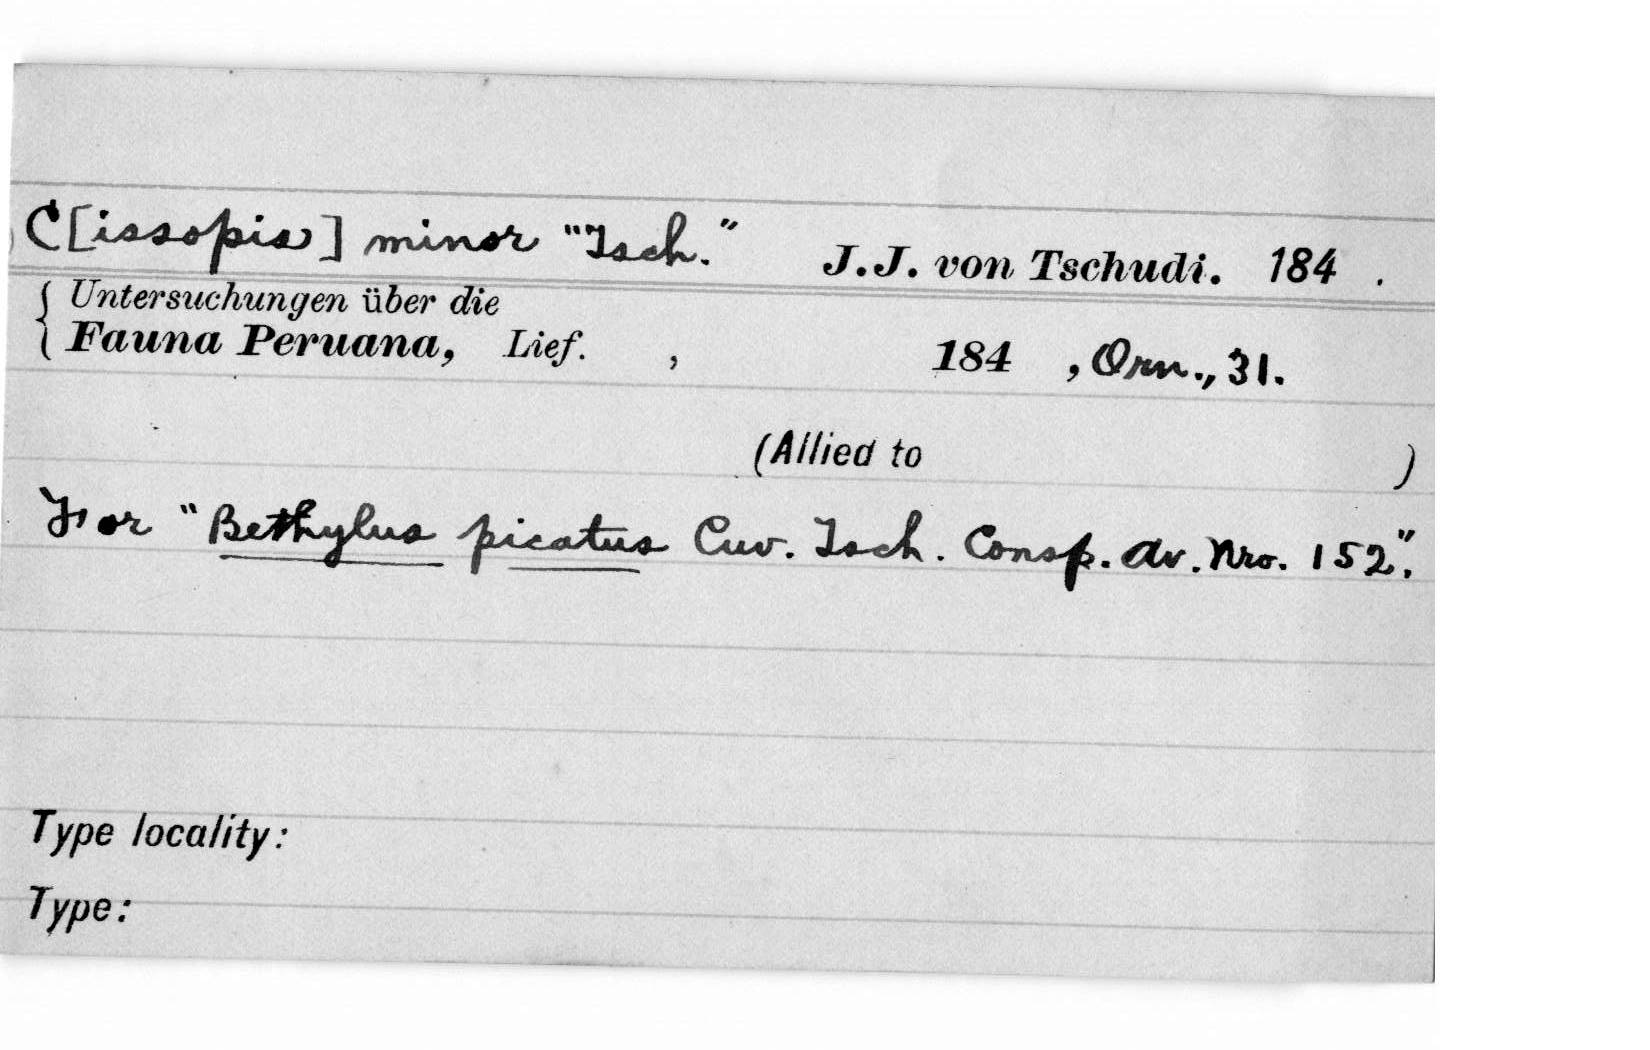 C[issopis] minor "Tsch." J.J. von Tschudi. 184 .
{ Untersuchungen über die
Fauna Peruana, Lief. , 184 , Orn., 31.
(Allied to )
For "Bethylus picatus Cuv. Tsch. Consp. Av. Nro. 152".
Type locality:
Type: